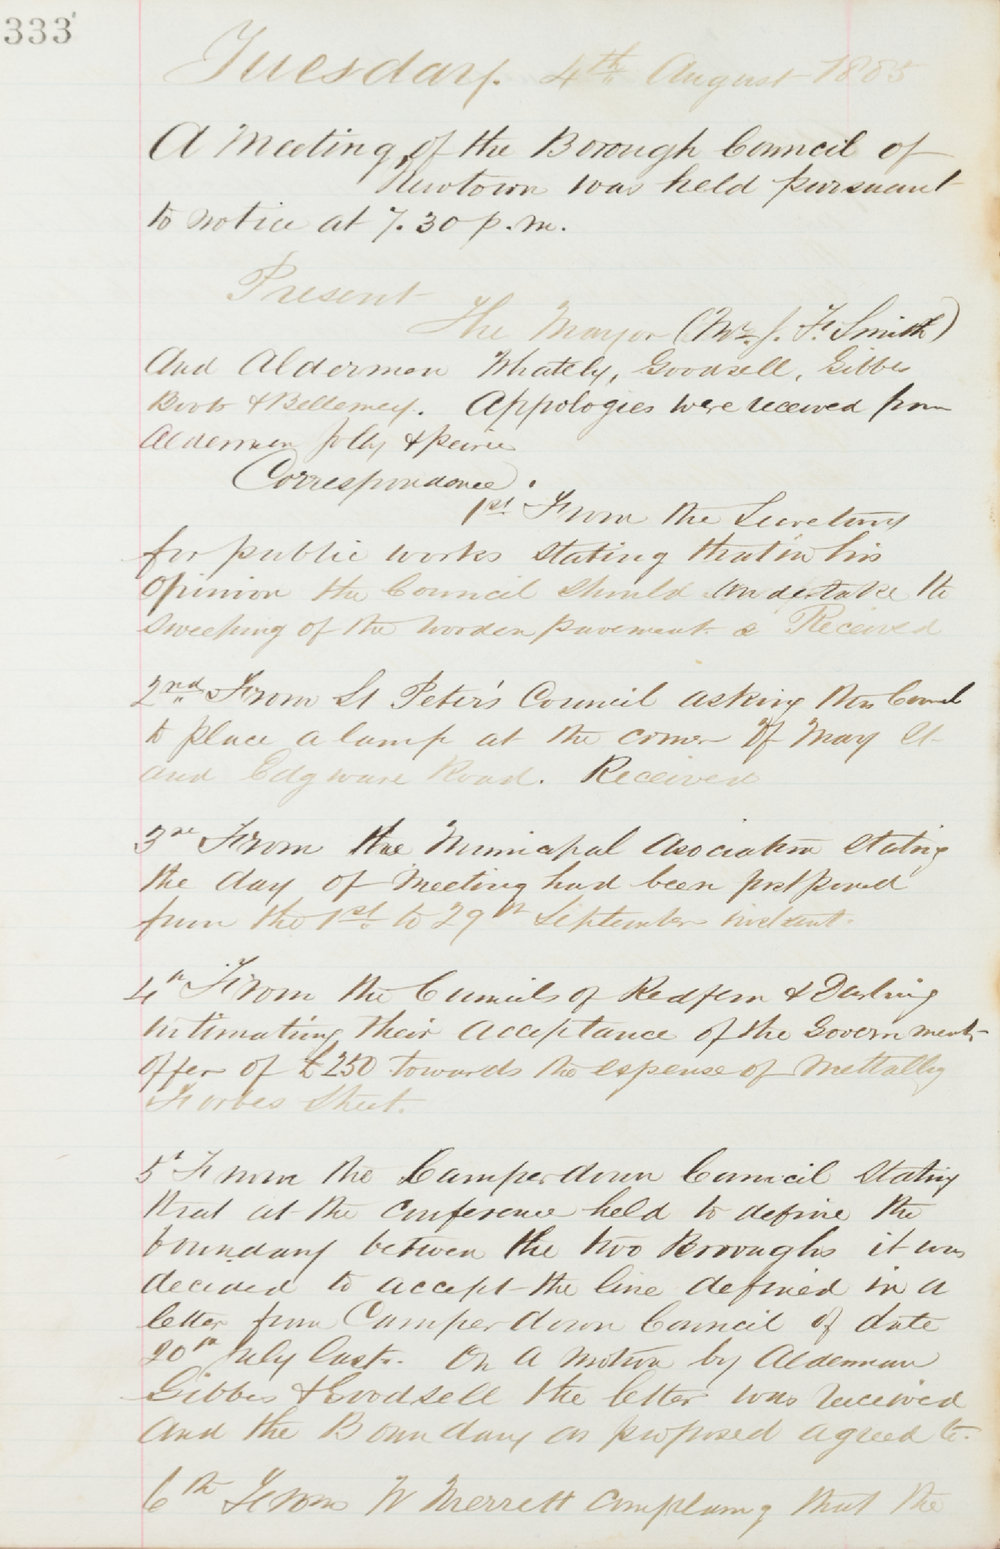 333
Tuesday. 4th August 1885
A Meeting of the Borough Council of
Newtown was held pursuant
to notice at 7.30 p.m.
Present
The Mayor (Mr. J. F. Smith)
And Aldermen Whately, Goodsell, Gibbes
Boots & Bellemey. Appologies were received from
Aldermen Jolly & Peirie
Correspondence.
1st From the Secretary
for public works stating that in his
opinion the Council should undertake the
sweeping of the wooden pavement Received
2nd From St Peter's Council asking this Council
to place a lamp at the corner of May St
and Edgware Road. Received
3rd From the Municipal Asociation stating
the day of Meeting had been postponed
from the 1st to 29th September
4th From the Councils of Redfern & Darling
intimating their acceptance of the Government
offer of £250 towards the expense of Mettalling
Forbes Street.
5th From the Camperdown Council stating
that at the conference held to define the
boundary between the two Boroughs it was
decided to accept the line defined in a
letter from Camperdown Council of date
20th July last. On a motion by Alderman
Gibbes & Goodsell the letter was received
and the Boundary as proposed agreed to.
6th From W Merrett complaing that the